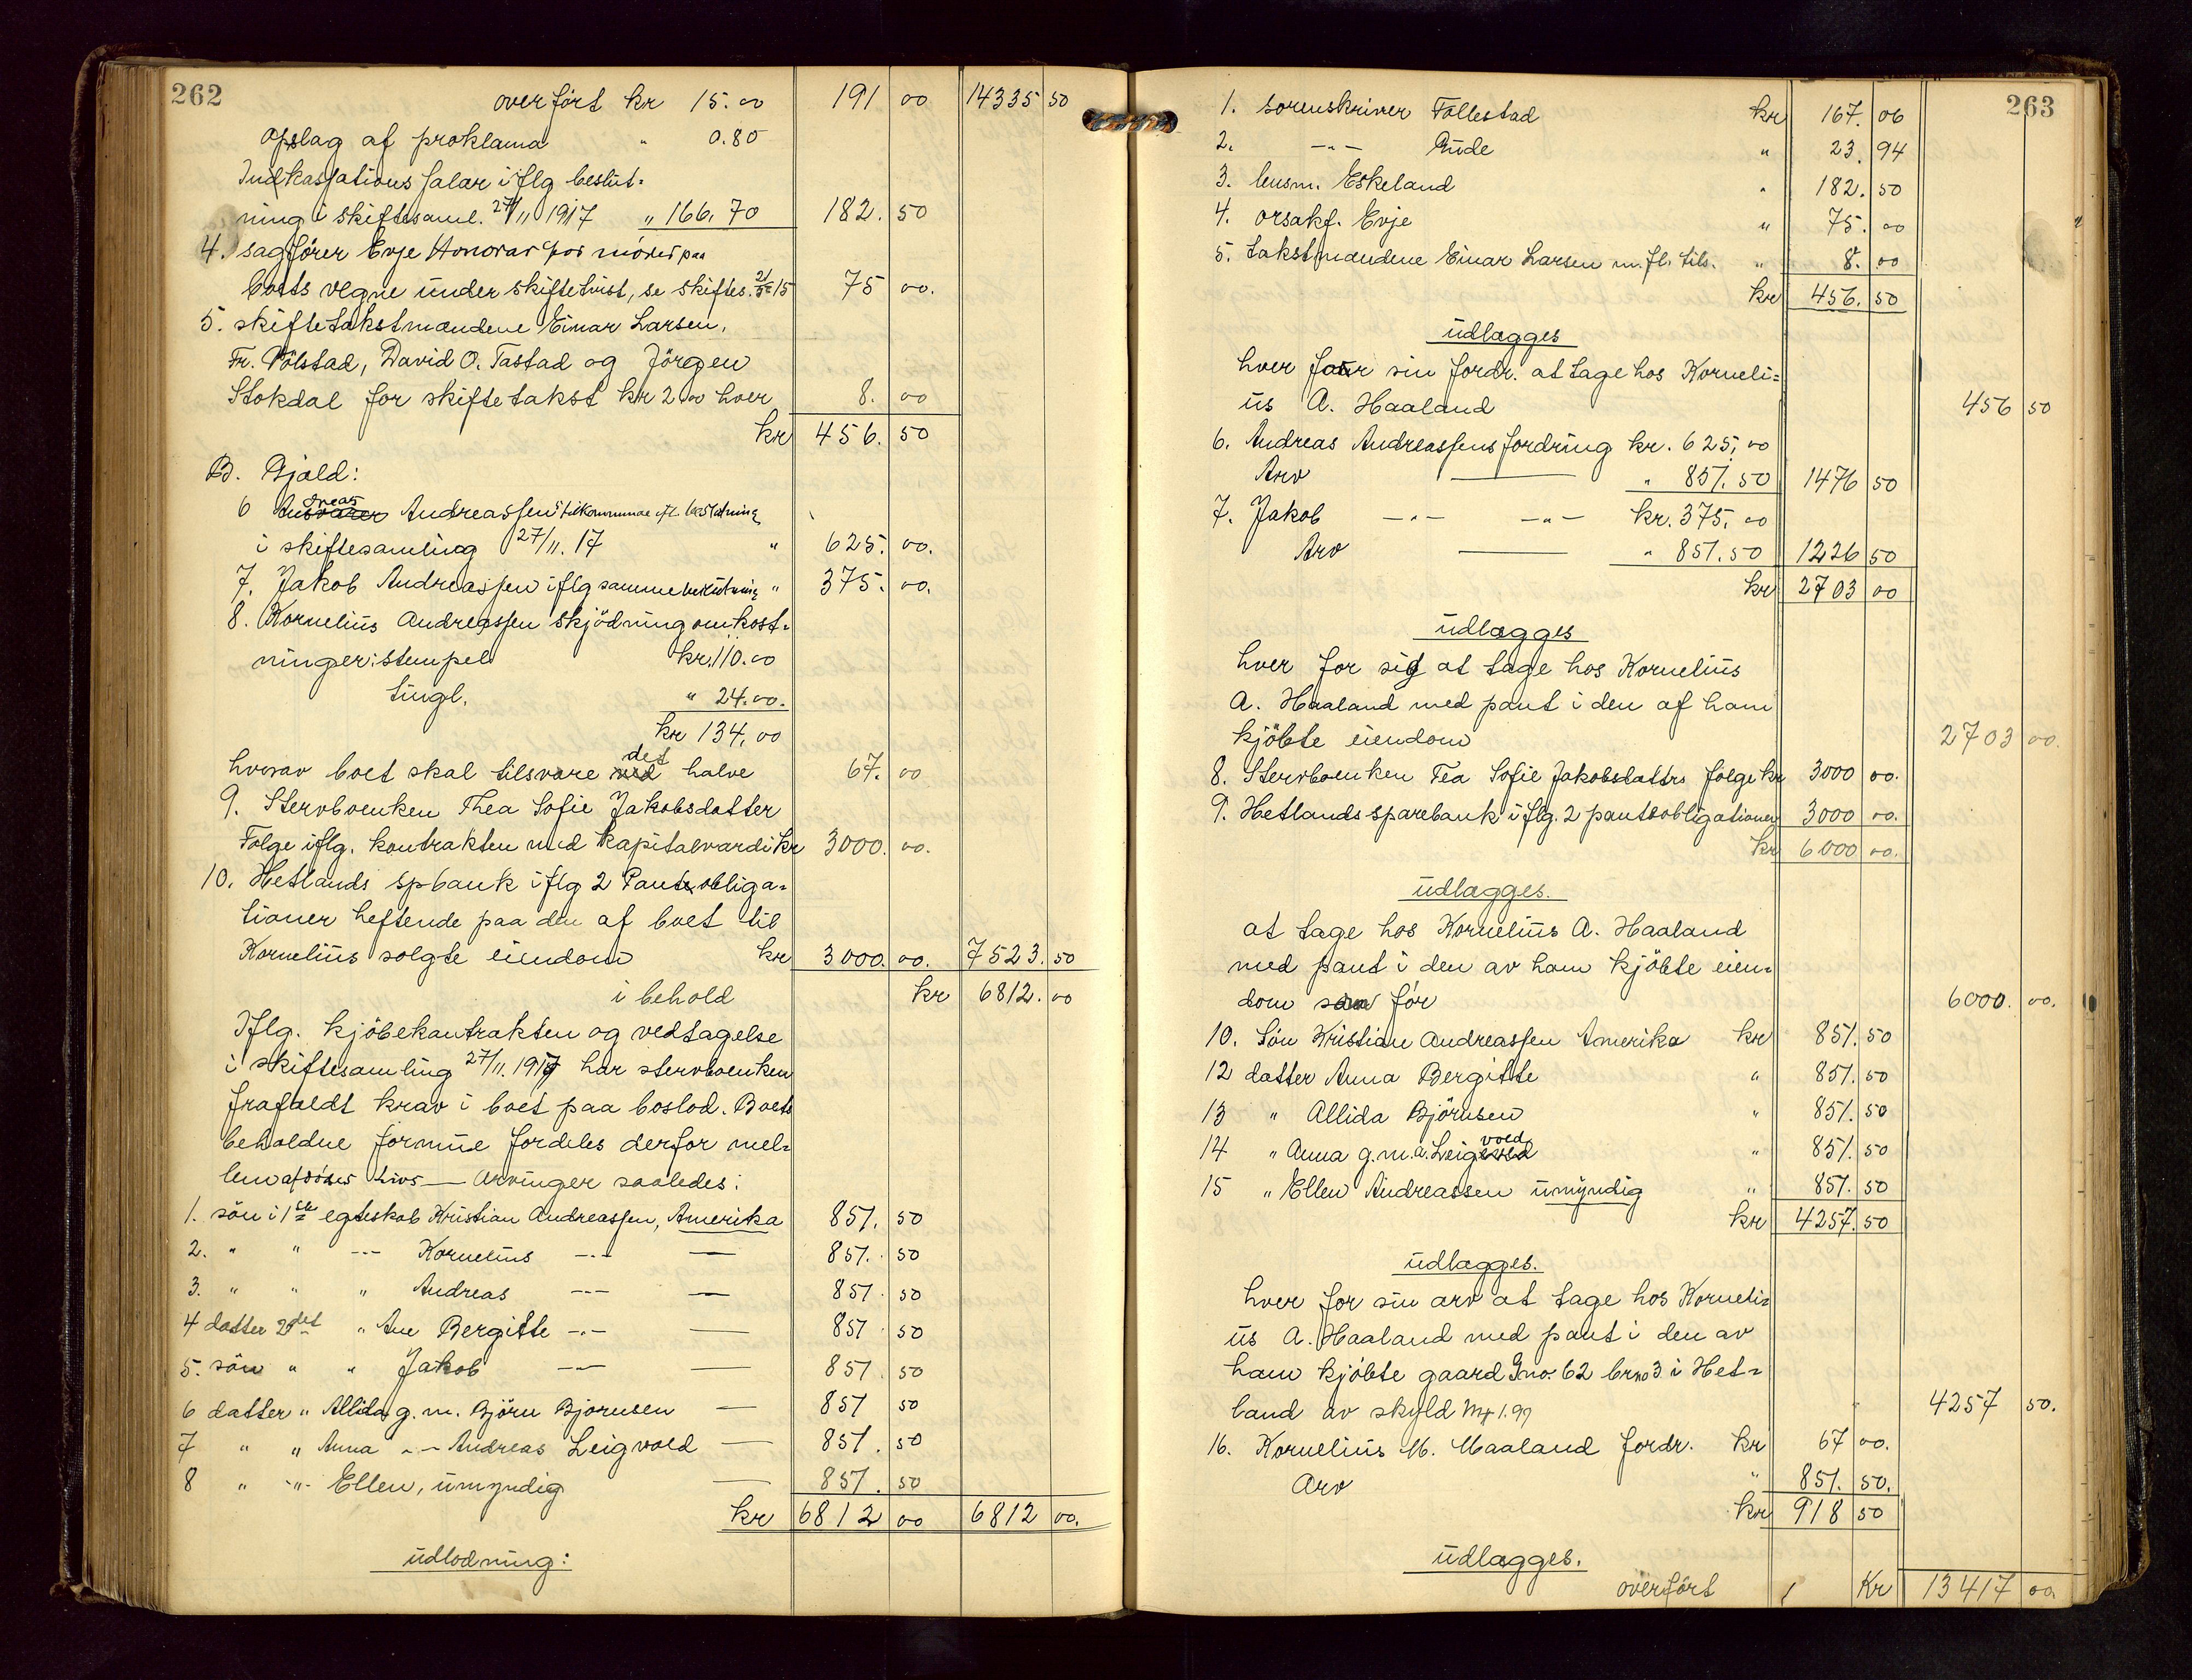 262
overført kr 15.00 191 00 14335 50
Opslag af proklama " 0.80
Indkassations salær iflg beslut-
ning i skiftesaml. 27/11 1917 " 166.70 182. 50
4. sagfører Evje Honorar for mødet paa
boets vegne under skiftetvist, se skiftes. 15 75 00.
5. skiftetakstmændene Einar Larsen,
Fr. Pölstad, David O. Tastad og Jörgen
Stokdal for skiftetakst kr 2.00 hver 8. 00
kr 456. 50
B. Gjæld:
6 Andreas Andreassen tilkommende ifl. beslutning
i skiftesamling 27/11. 17 " 625. 00.
7. Jakob Andreassen iflg samme beslutning " 375. 00.
8. Kornelius Andreassen skjödningomkost-
ninger: stempel kr. 110.00
tingl. " 24.00.
kr 134,00
hvorav boet skal tilsvare det halve 67. 00
9. Stervboenken Thea Sofie Jakobsdatter
Følge iflg. kontrakten med kapitalværdi kr 3000. 00.
10. Hetlands spbank iflg 2 Panteobliga-
tioner heftende paa den af boet til
Kornelius solgte eiendom kr 3000. 00. 7523. 50
i behold kr 6812. 00
Iflg. kjöbekontrakten og vedtagelse
i skiftesamling 27/11. 1917 har stervboenken
frafaldt krav i boet paa boslod. Boets
beholdne formue fordeles derfor mel-
lem afdödes Livs— Arvinger saaledes:
1. sön i 1ste egteskab Kristian Andreassen, Amerika 851. 50
2. " " -"- Kornelius -"- — 851. 50
3. " " " Andreas -"- — 851. 50
4 datter 2det " Ane Bergitte -"- — 851. 50
5. sön " " Jakob -"- — 851. 50
6 datter " Allida g. m. Björn Bjornsen — 851 50
7 " " Anna -"- Andreas Leigvold — 851. 50
8 " -"- Ellen, umyndig — 851. 50
kr 6812 00 6812 00.
udlodning:
263
1. sorenskriver Follestad kr 167. 06
2. -"- Gude " 23. 94
3. lensm. Eskeland " 182. 50
4. orsakf. Evje " 75. 00
5. takstmændene Einar Larsen m. fl. tils. " 8. 00
kr 456. 50
udlægges
hver for sin fordr. at tage hos Korneli-
us A. Haaland 456 50
6. Andreas Andreassens fordring kr. 625,00
Arv — " 851.50 1476 50
7. Jakob -"- -"- kr. 375,00
Arv — " 851.50 1226 50
kr 2703 00
udlægges
hver for sig at tage hos Kornelius
A. Haaland med pant i den af ham
kjöbte eiendom 2703 00.
8. Stervboenken Tea Sofie Jakobsdattrs følge kr 3000 00.
9. Hetlands sparebank iflg. 2 pantobligationer 3000 00.
kr 6000 00.
udlægges.
at tage hos Kornelius A. Haaland
med pant i den av ham kjöbte eien-
dom som för 6000. 00.
10. Sön Kristian Andreassen Amerika kr 851. 50
12 datter Anna Bergitte " 851. 50
13 " Allida Björnsen " 851. 50
14 " Anna g. m. A. Leigvold " 851. 50
15 " Ellen Andreassen umyndig " 851. 50
kr 4257. 50
udlægges.
hver for sin arv at tage hos Korneli-
us A. Haaland med pant i den av
ham kjöbte gaard Gno. 62 brno 3 i Het-
land av skyld Mk 1.99 4257 50.
16. Kornelius M. Maaland fordr. kr 67 00.
Arv " 851. 50.
kr 918 50
udlægges.
overført Kr 13417 00.